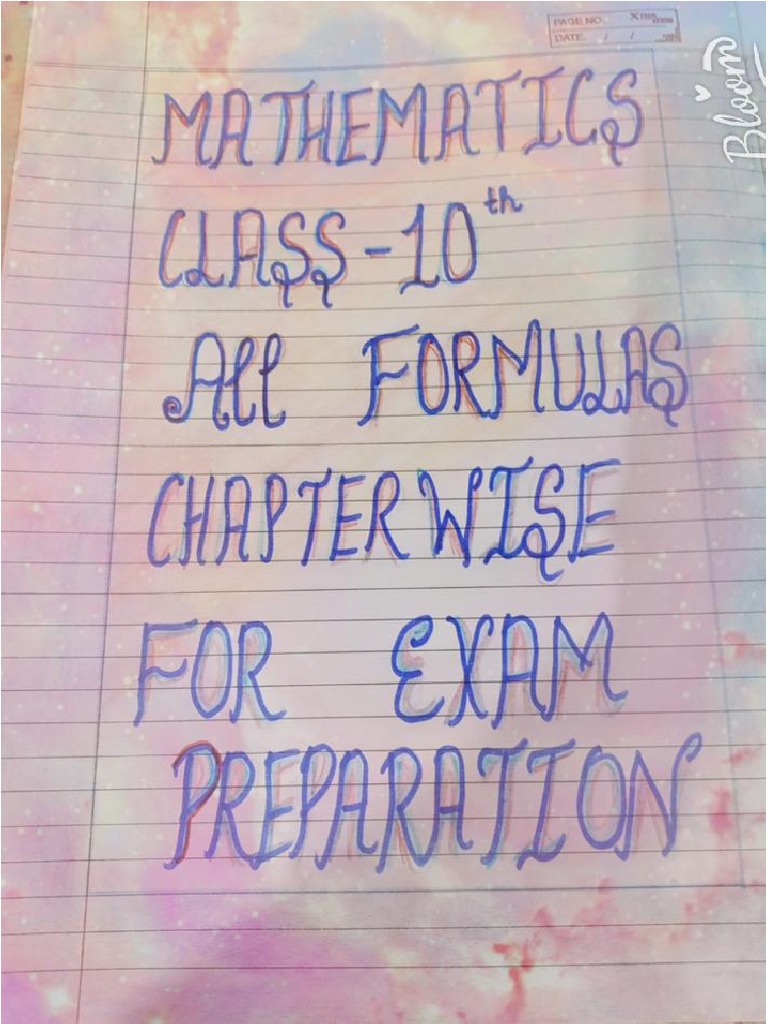 PAGE NO.
DATE. / /
Bloom
MATHEMATICS
CLASS-10th
All FORMULAS
CHAPTERWISE
FOR EXAM
PREPARATION